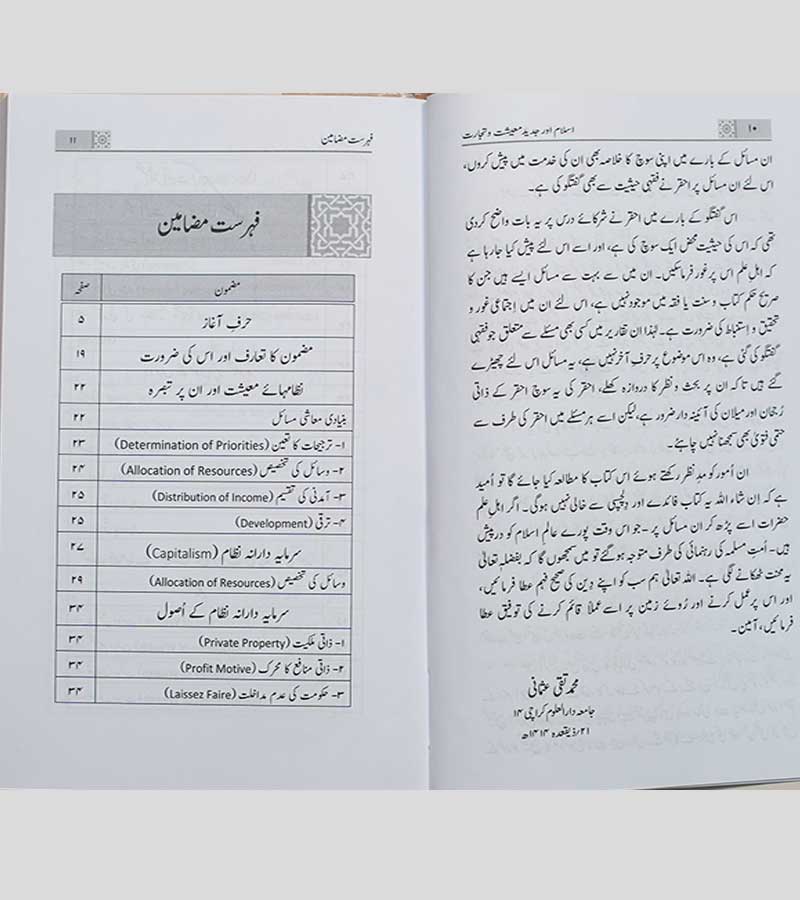 ۱۰
اسلام اور جدید معیشت و تجارت
ان مسائل کے بارے میں اپنی سوچ کا خلاصہ بھی ان کی خدمت میں پیش کروں،
اس لئے ان مسائل پر احقر نے فقہی حیثیت سے بھی گفتگو کی ہے۔
اس گفتگو کے بارے میں احقر نے شرکائے درس پر یہ بات واضح کردی
تھی کہ اس کی حیثیت محض ایک سوچ کی ہے، اور اسے اس لئے پیش کیا جارہا ہے
کہ اہلِ علم اس پر غور فرماسکیں۔ ان میں سے بہت سے مسائل ایسے ہیں جن کا
صریح حکم کتاب و سنت یا فقہ میں موجود نہیں ہے، اس لئے ان میں اِجتماعی غور و
تحقیق و اِستنباط کی ضرورت ہے۔ لہٰذا ان تقاریر میں کسی بھی مسئلے سے متعلق جو فقہی
گفتگو کی گئی ہے، وہ اس موضوع پر حرفِ آخر نہیں ہے، یہ مسائل اس لئے چھیڑے
گئے ہیں تاکہ ان پر بحث و نظر کا دروازہ کھلے، احقر کی یہ سوچ احقر کے ذاتی
رُجحان اور میلان کی آئینہ دار ضرور ہے، لیکن اسے ہر مسئلے میں احقر کی طرف سے
حتمی فتویٰ بھی سمجھنا نہیں چاہئے۔
ان اُمور کو مدِ نظر رکھتے ہوئے اس کتاب کا مطالعہ کیا جائے گا تو اُمید
ہے کہ اِن شاء اللہ یہ کتاب فائدے اور دِلچسپی سے خالی نہیں ہوگی۔ اگر اہلِ علم
حضرات اسے پڑھ کر ان مسائل پر - جو اس وقت پورے عالمِ اسلام کو درپیش
ہیں- اُمتِ مسلمہ کی رہنمائی کی طرف متوجہ ہوگئے تو میں سمجھوں گا کہ بفضلہٖ تعالیٰ
یہ محنت ٹھکانے لگی ہے۔ اللہ تعالیٰ ہم سب کو اپنے دِین کی صحیح فہم عطا فرمائیں،
اور اس پر عمل کرنے اور رُوئے زمین پر اسے عملاً قائم کرنے کی توفیق عطا
فرمائیں، آمین۔
محمد تقی عثمانی
جامعہ دارالعلوم کراچی ۱۴
۲۱/ذیقعدہ ۱۴۱۴ھ
فہرست مضامین
۱۱
فہرست مضامین
مضمون صفحہ
حرفِ آغاز ۵
مضمون کا تعارف اور اس کی ضرورت ۱۹
نظامہائے معیشت اور ان پر تبصرہ ۲۲
بنیادی معاشی مسائل ۲۲
۱- ترجیحات کا تعین (Determination of Priorities) ۲۳
۲- وسائل کی تخصیص (Allocation of Resources) ۲۴
۳- آمدنی کی تقسیم (Distribution of Income) ۲۵
۴- ترقی (Development) ۲۵
سرمایہ دارانہ نظام (Capitalism) ۲۷
وسائل کی تخصیص (Allocation of Resources) ۲۹
سرمایہ دارانہ نظام کے اُصول ۳۴
۱- ذاتی ملکیت (Private Property) ۳۴
۲- ذاتی منافع کا محرک (Profit Motive) ۳۴
۳- حکومت کی عدم مداخلت (Laissez Faire) ۳۴